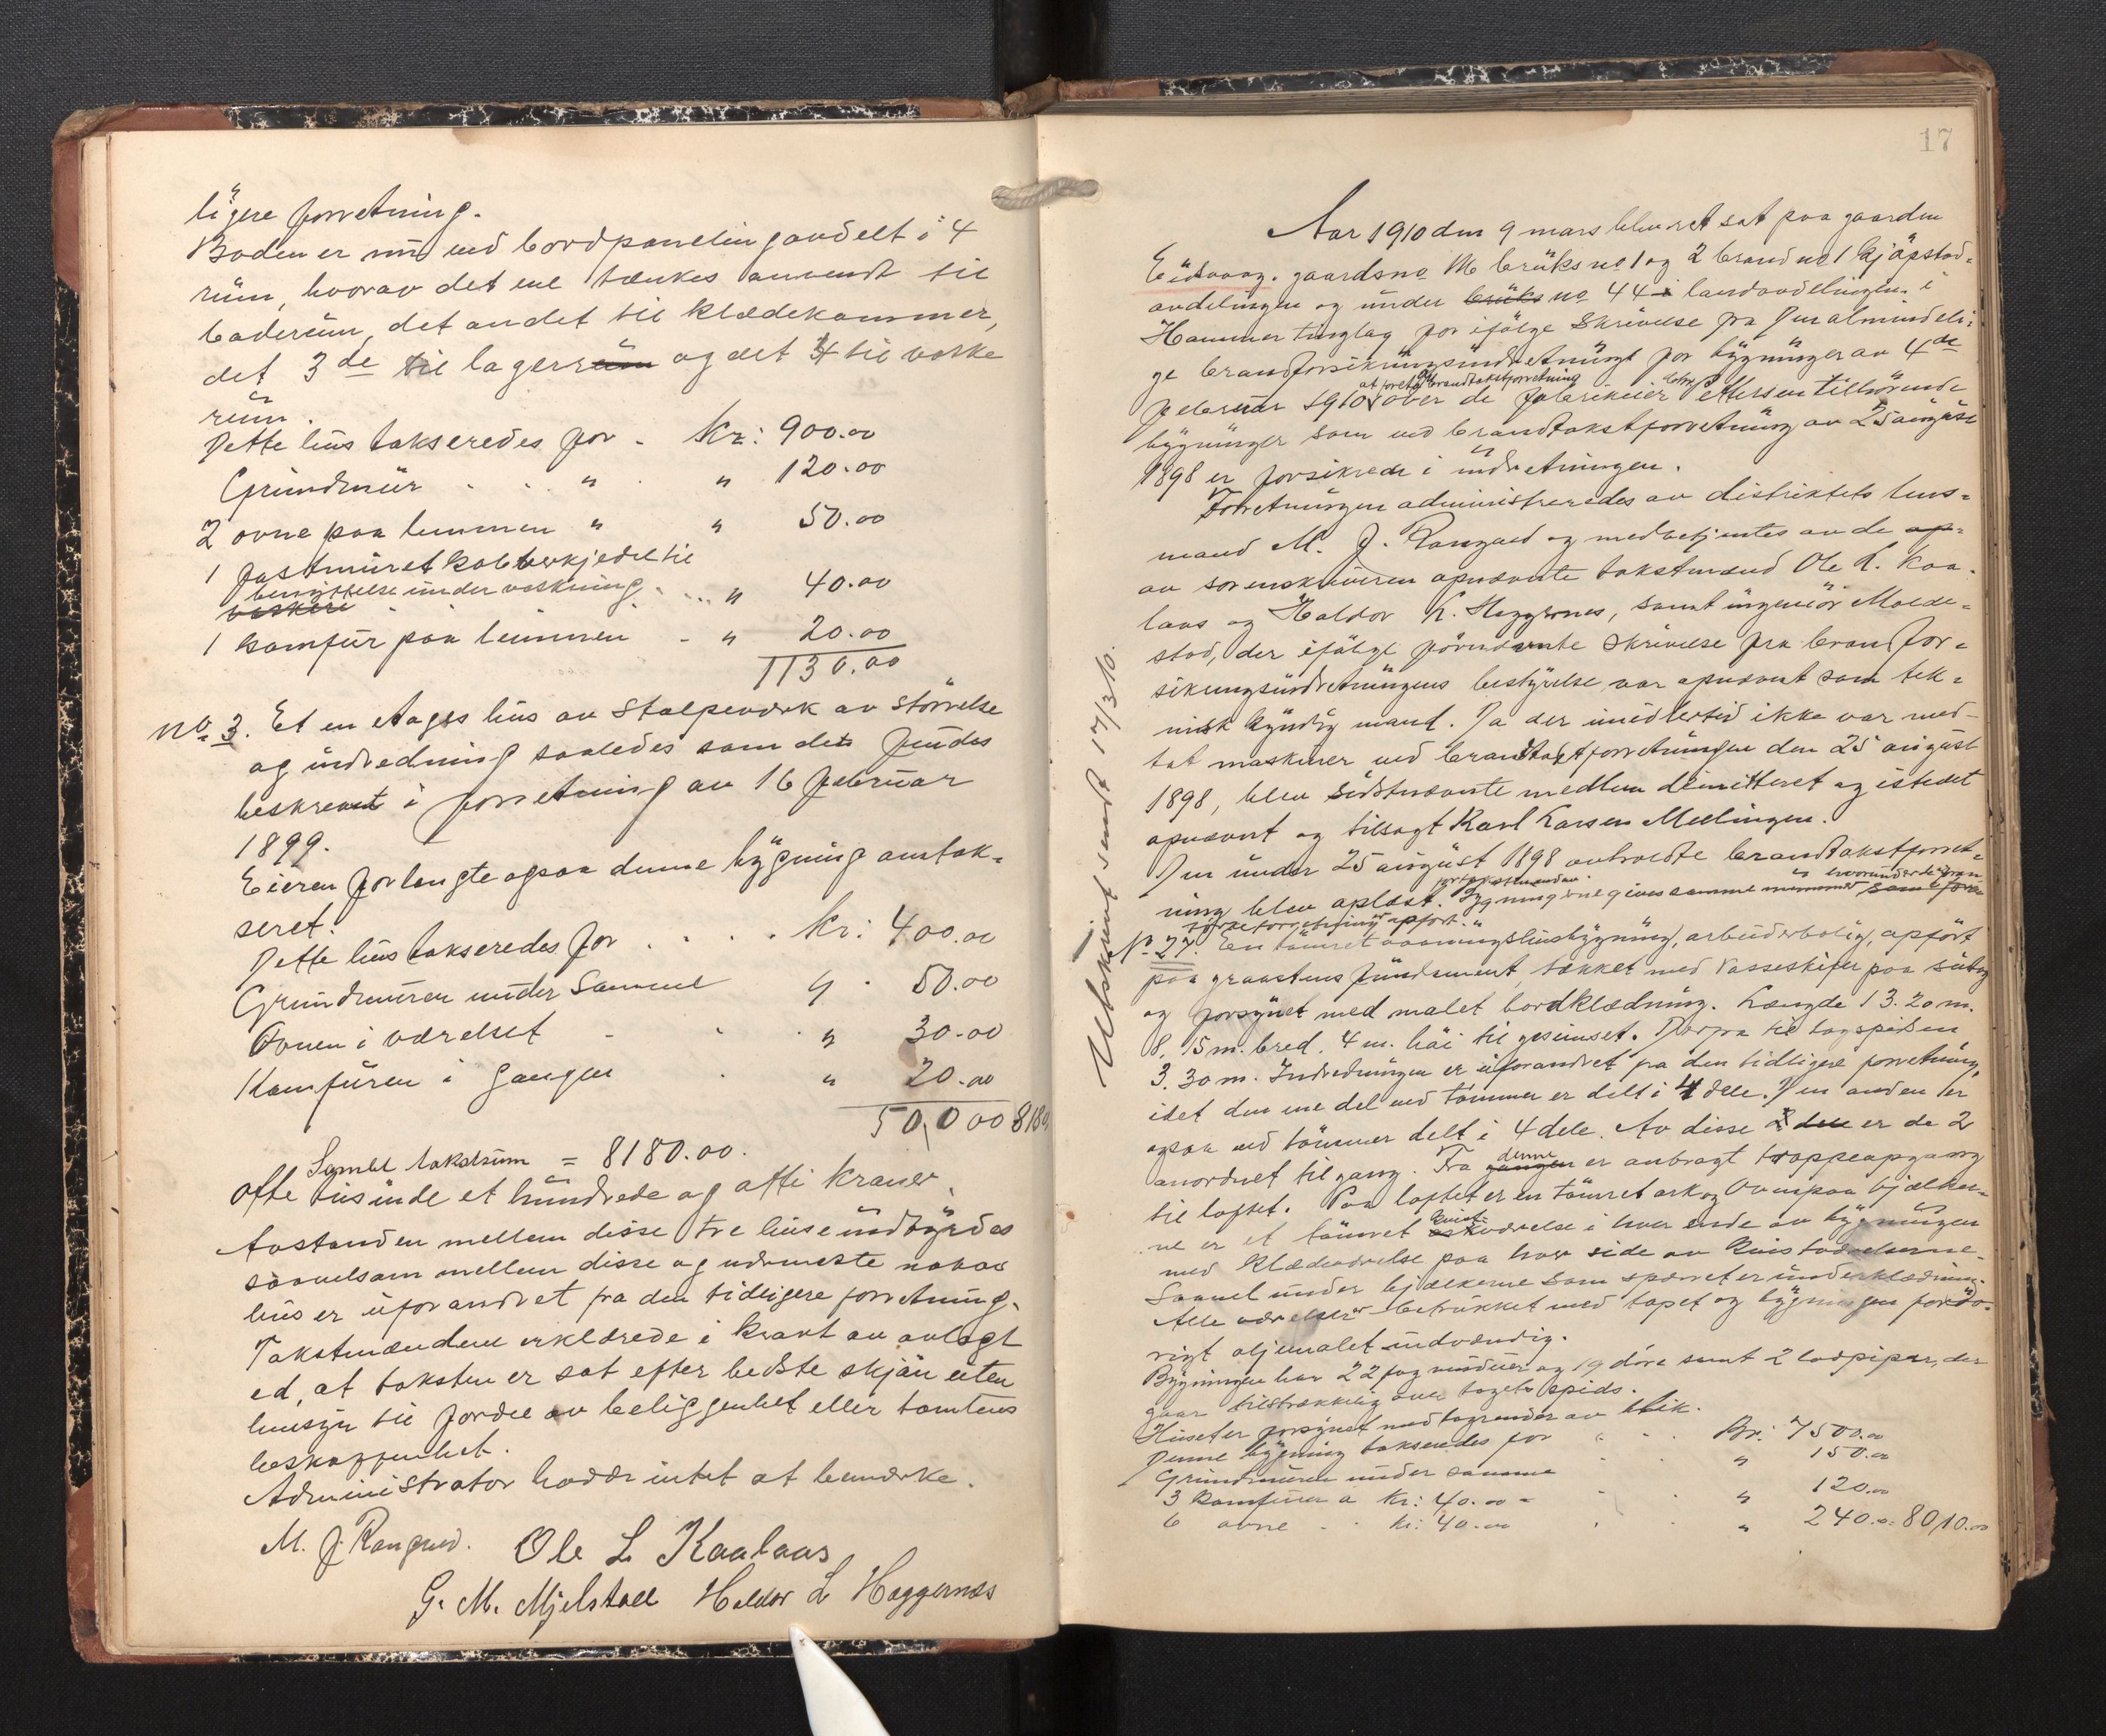 ligere forretning.
Boden er nu ved bordpaneling avdelt i 4
rum, hvorav det ene tænkes anvendt til
baderum, det andet til klædekammer,
det 3de til lagerrum og det 4 til vaske
rum.
Dette hus takseredes for . Kr: 900.00
Grundmur . . . " . " 120.00
2 ovne paa lemmen " " 50.00
1 fastmuret kobberkjedel til
benyttelse under vaskning . . . " 40.00
vaskeri
1 komfur paa lemmen - " 20.00
1130.00
No 3. Et en etages hus av Stolpeværk av större­lse
og indredning saaledes som det findes
beskrevet i forretning av 16 februar
1899.
Eieren forlangte ogsaa denne bygning omtak=
seret.
Dette hus takseredes for . . . . Kr: 400.00
Grundmuren under Samme " . 50.00
Ovnen i værelset - . . " 30.00
Komfuren i gangen . " 20.00
500.00 8180
Samlet takstsum = 8180.00.
Otte tusinde et hundrede og otti kroner.
Avstanden mellem disse tre huse indbyrdes
saavelsom mellem disse og nærmeste nabo
hus er uforandret fra den tidligere forretning.
Takstmændene erklærede i kraft av avlagt
ed, at taksten er sat efter bedste skjön uten
hensyn til fordel av beliggenhet eller tomtens
beskaffenhet.
Administrator hadde intet at bemærke.
M. J. Rangud. Ole L Kaalaas
G. M. Mjelstad Haldor L Haggernæs
17
Aar 1910 den 9 mars blev ret sat paa gaarden
Eidsvaag. gaardsno bruks no 1 og 2 brand no 1 kjöpstad=
avdelingen og under bruks no 44 i landavdelingen. i
Hammer tinglag for ifölge Skrivelse fra Den almindeli=
ge brandforsikringsindretning for bygninger av 4de
februar 1910 at foreta brandtakstforretning over de fabrikeier Pettersen tilhörende
bygninger som ved brandtakstforretning av 25 august
1898 er forsikrede i indretningen.
Forretningen administreredes av distriktets lens=
mand M. J. Rangud og medbetjentes av de op=
av sorenskriveren opnævnte takstmænd Ole L. Kaa=
laas og Haldor L. Haggernes, samt ingeniör Molde=
stad, der ifölge förnævnte skrivelse fra brandfor=
sikringsindretningens bestyrelse var opnævnt som tek=
nisk kyndig mand. Da der imidlertid ikke var med=
tat maskiner ved brandtakstforretningen den 25 august
1898, blev sidstnævnte medlem dimitteret og istedet
opnævnt og tilsagt Karl Larsen Mellingen.
Den under 25 august 1898 avholdte brandtakstforret=
ning blev oplæst. Bygningerne gives samme nummer hvorunder de i
forretning opfört.
No 27. En tömret vaaningshusbygning, arbeiderbolig, opfört
paa graastens fundament, tækket med Vosseskifer paa sutag
og forsynet med malet bordklædning. Længde 13.20 m.
8,15 m. bred. 4 m. höi til gesimset. Derfra til tagspidsen
3.30 m. Indredningen er uforandret fra den tidligere forretning,
idet den ene del ved tömmer er delt i 4 dele. Den anden er
ogsaa ved tömmer delt i 4 dele. Av disse 8 dele er de 2
anordnet til gang. Fra gangen denne er anbragt trappeopgang
til loftet. Paa loftet er en tömret ark og Ovenpaa bjælker=
ne er et tömret kvistværelse i hver ende av bygningen
med klædeværelse paa hver side av kvistværelserne.
Saavel under bjælkerne som sperret er underklædning.
Alle værelser betrukket med tapet og bygningen forö=
vrigt oljemalet indvendig.
Bygningen har 22 fag vinduer og 19 döre samt 2 lodpiper, der
gaar tilstrækkelig over tagets spids.
Huset er forsynet med tagrender av blik.
Denne bygning takseredes for " . . Kr: 7500.00
Grundmuren under samme . . " 150.00
3 komfurer a kr: 40.00 - . . " 120.00
6 ovne . . kr: 40.00 . " 240.00 = 8010.00
Utskrift sendt 17/3 10.